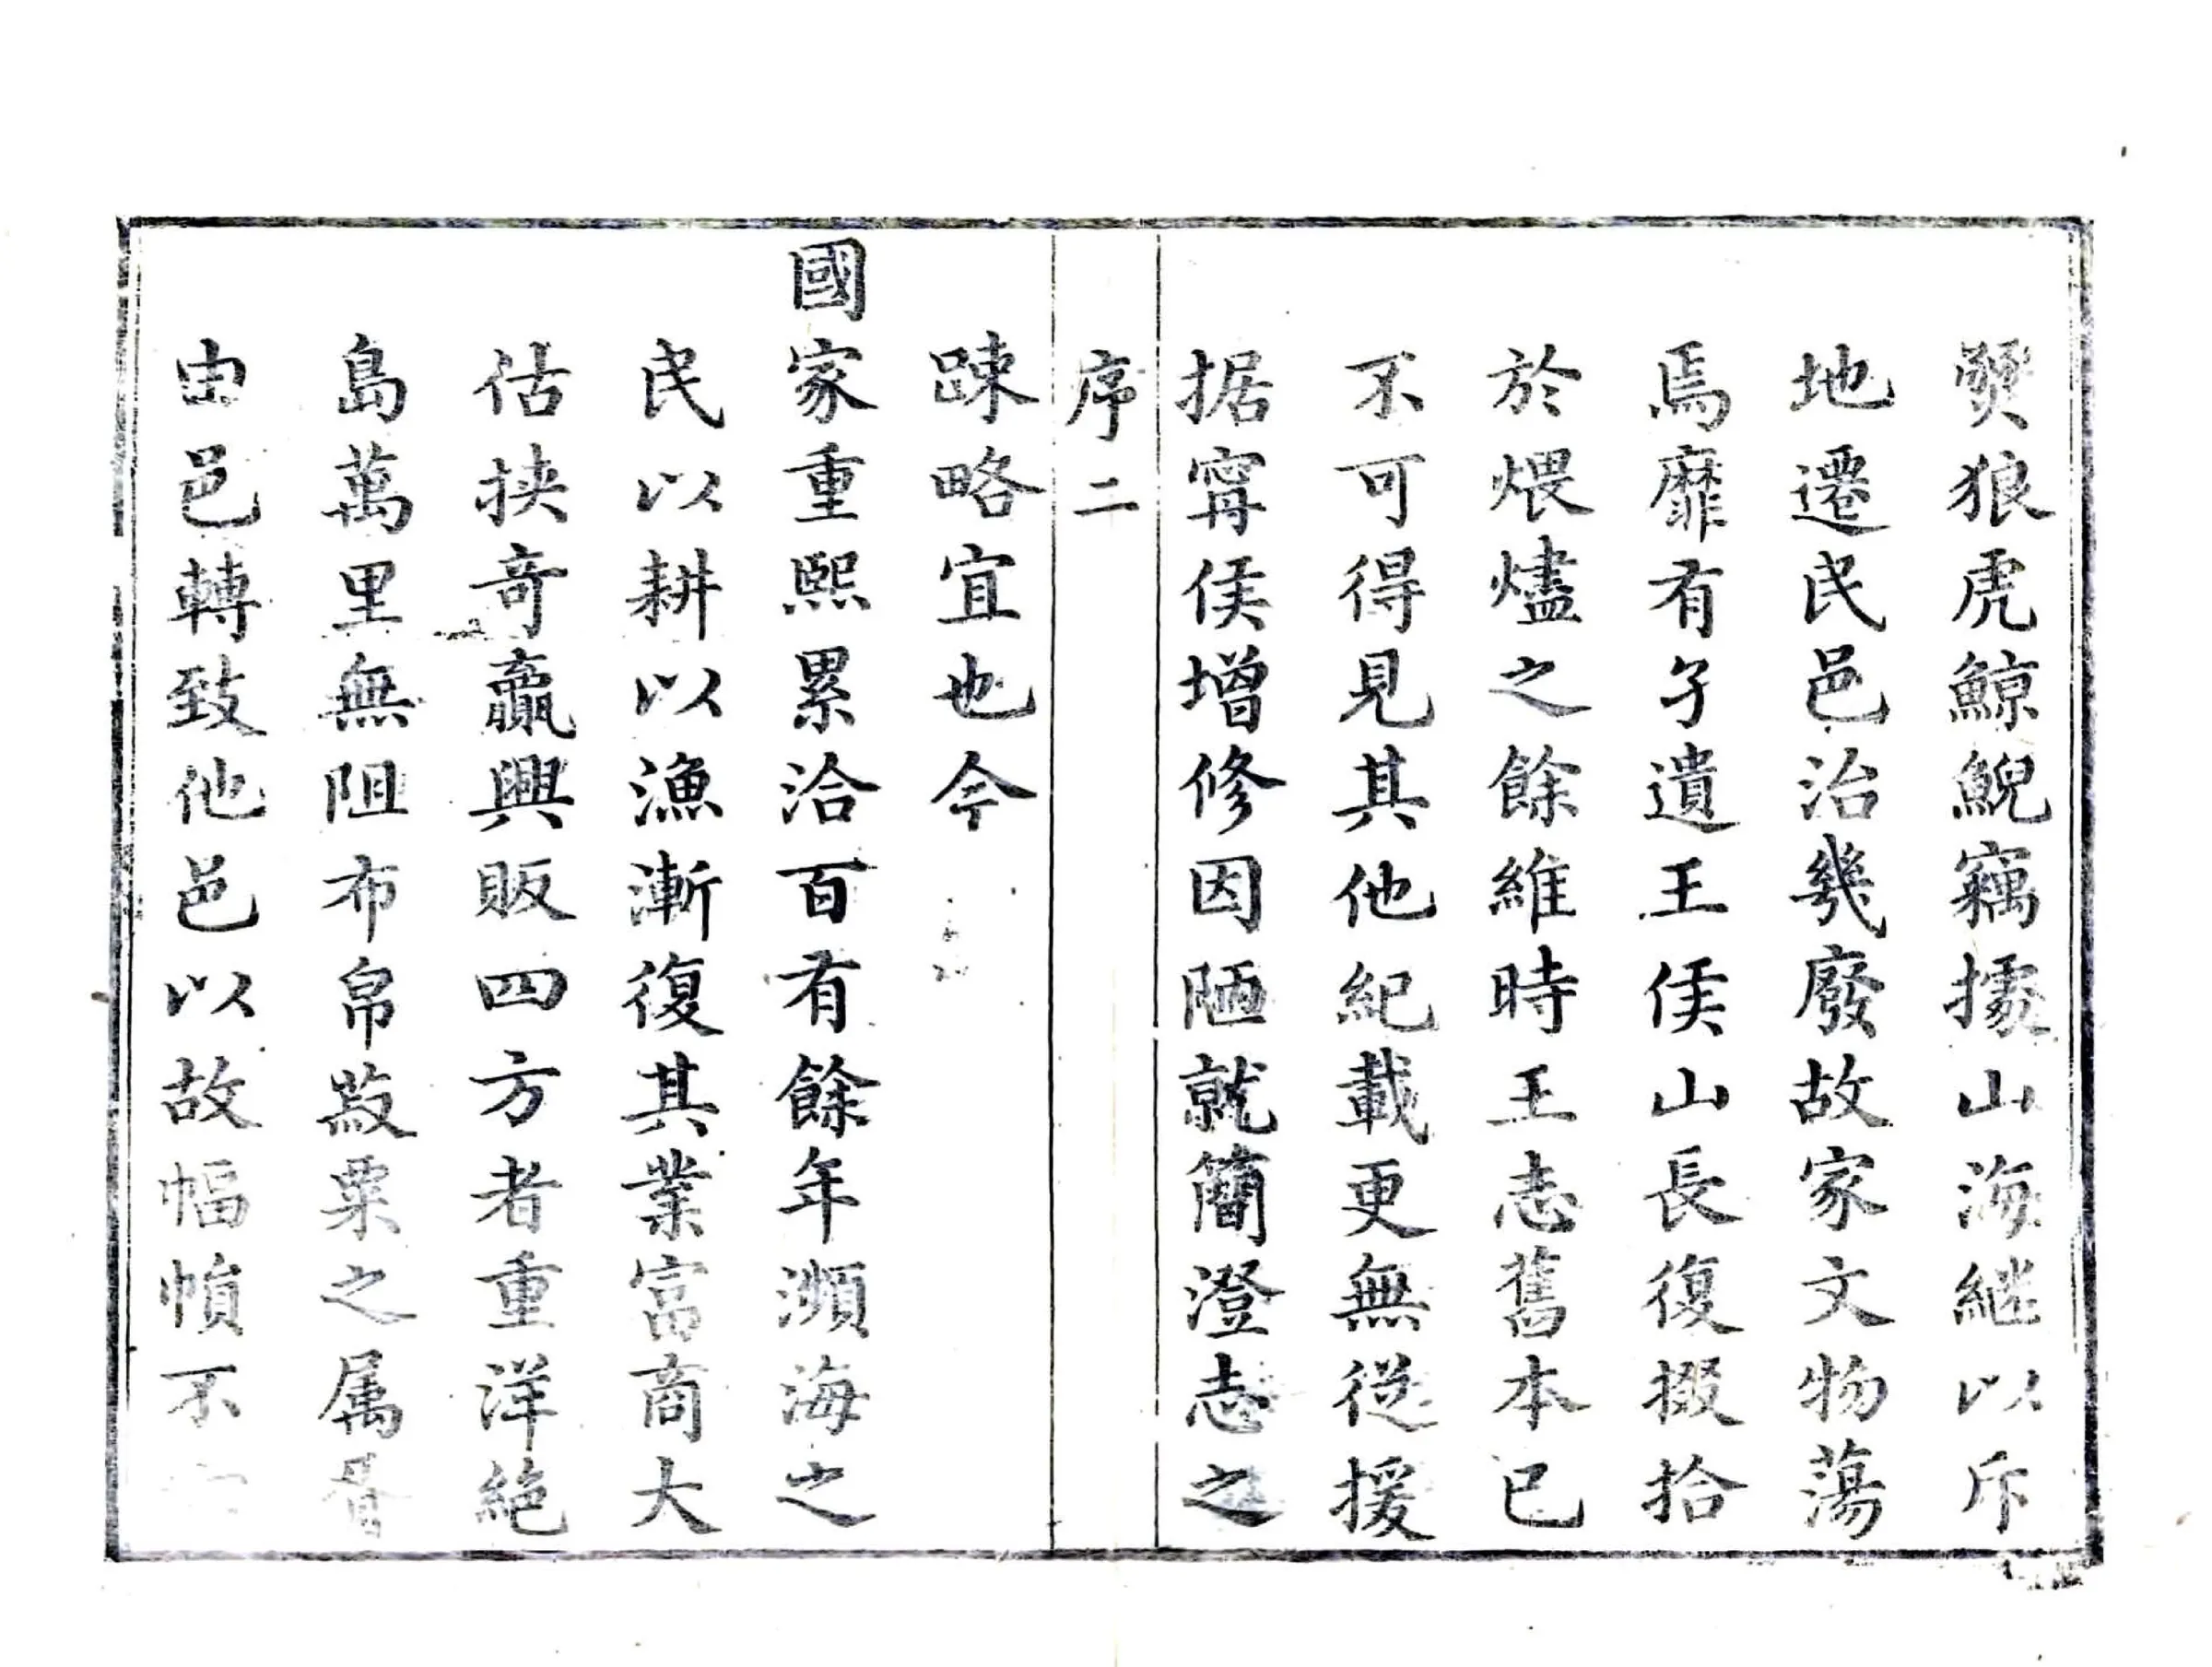 狼虎鯨鯢竊據山海繼以斥
地遷民邑治幾廢故家文物蕩
焉靡有孑遺王侯山長復掇拾
於煨燼之餘維時王志舊本已
不可得見其他紀載更無從援
据甯侯增修因陋就簡澄志之
序二
踈略宜也今
國家重熙累洽百有餘年瀕海之
民以耕以漁漸復其業富商大
估挾奇贏興販四方者重洋絕
島萬里無阻布帛菽粟之属
由邑轉致他邑以故幅幀不